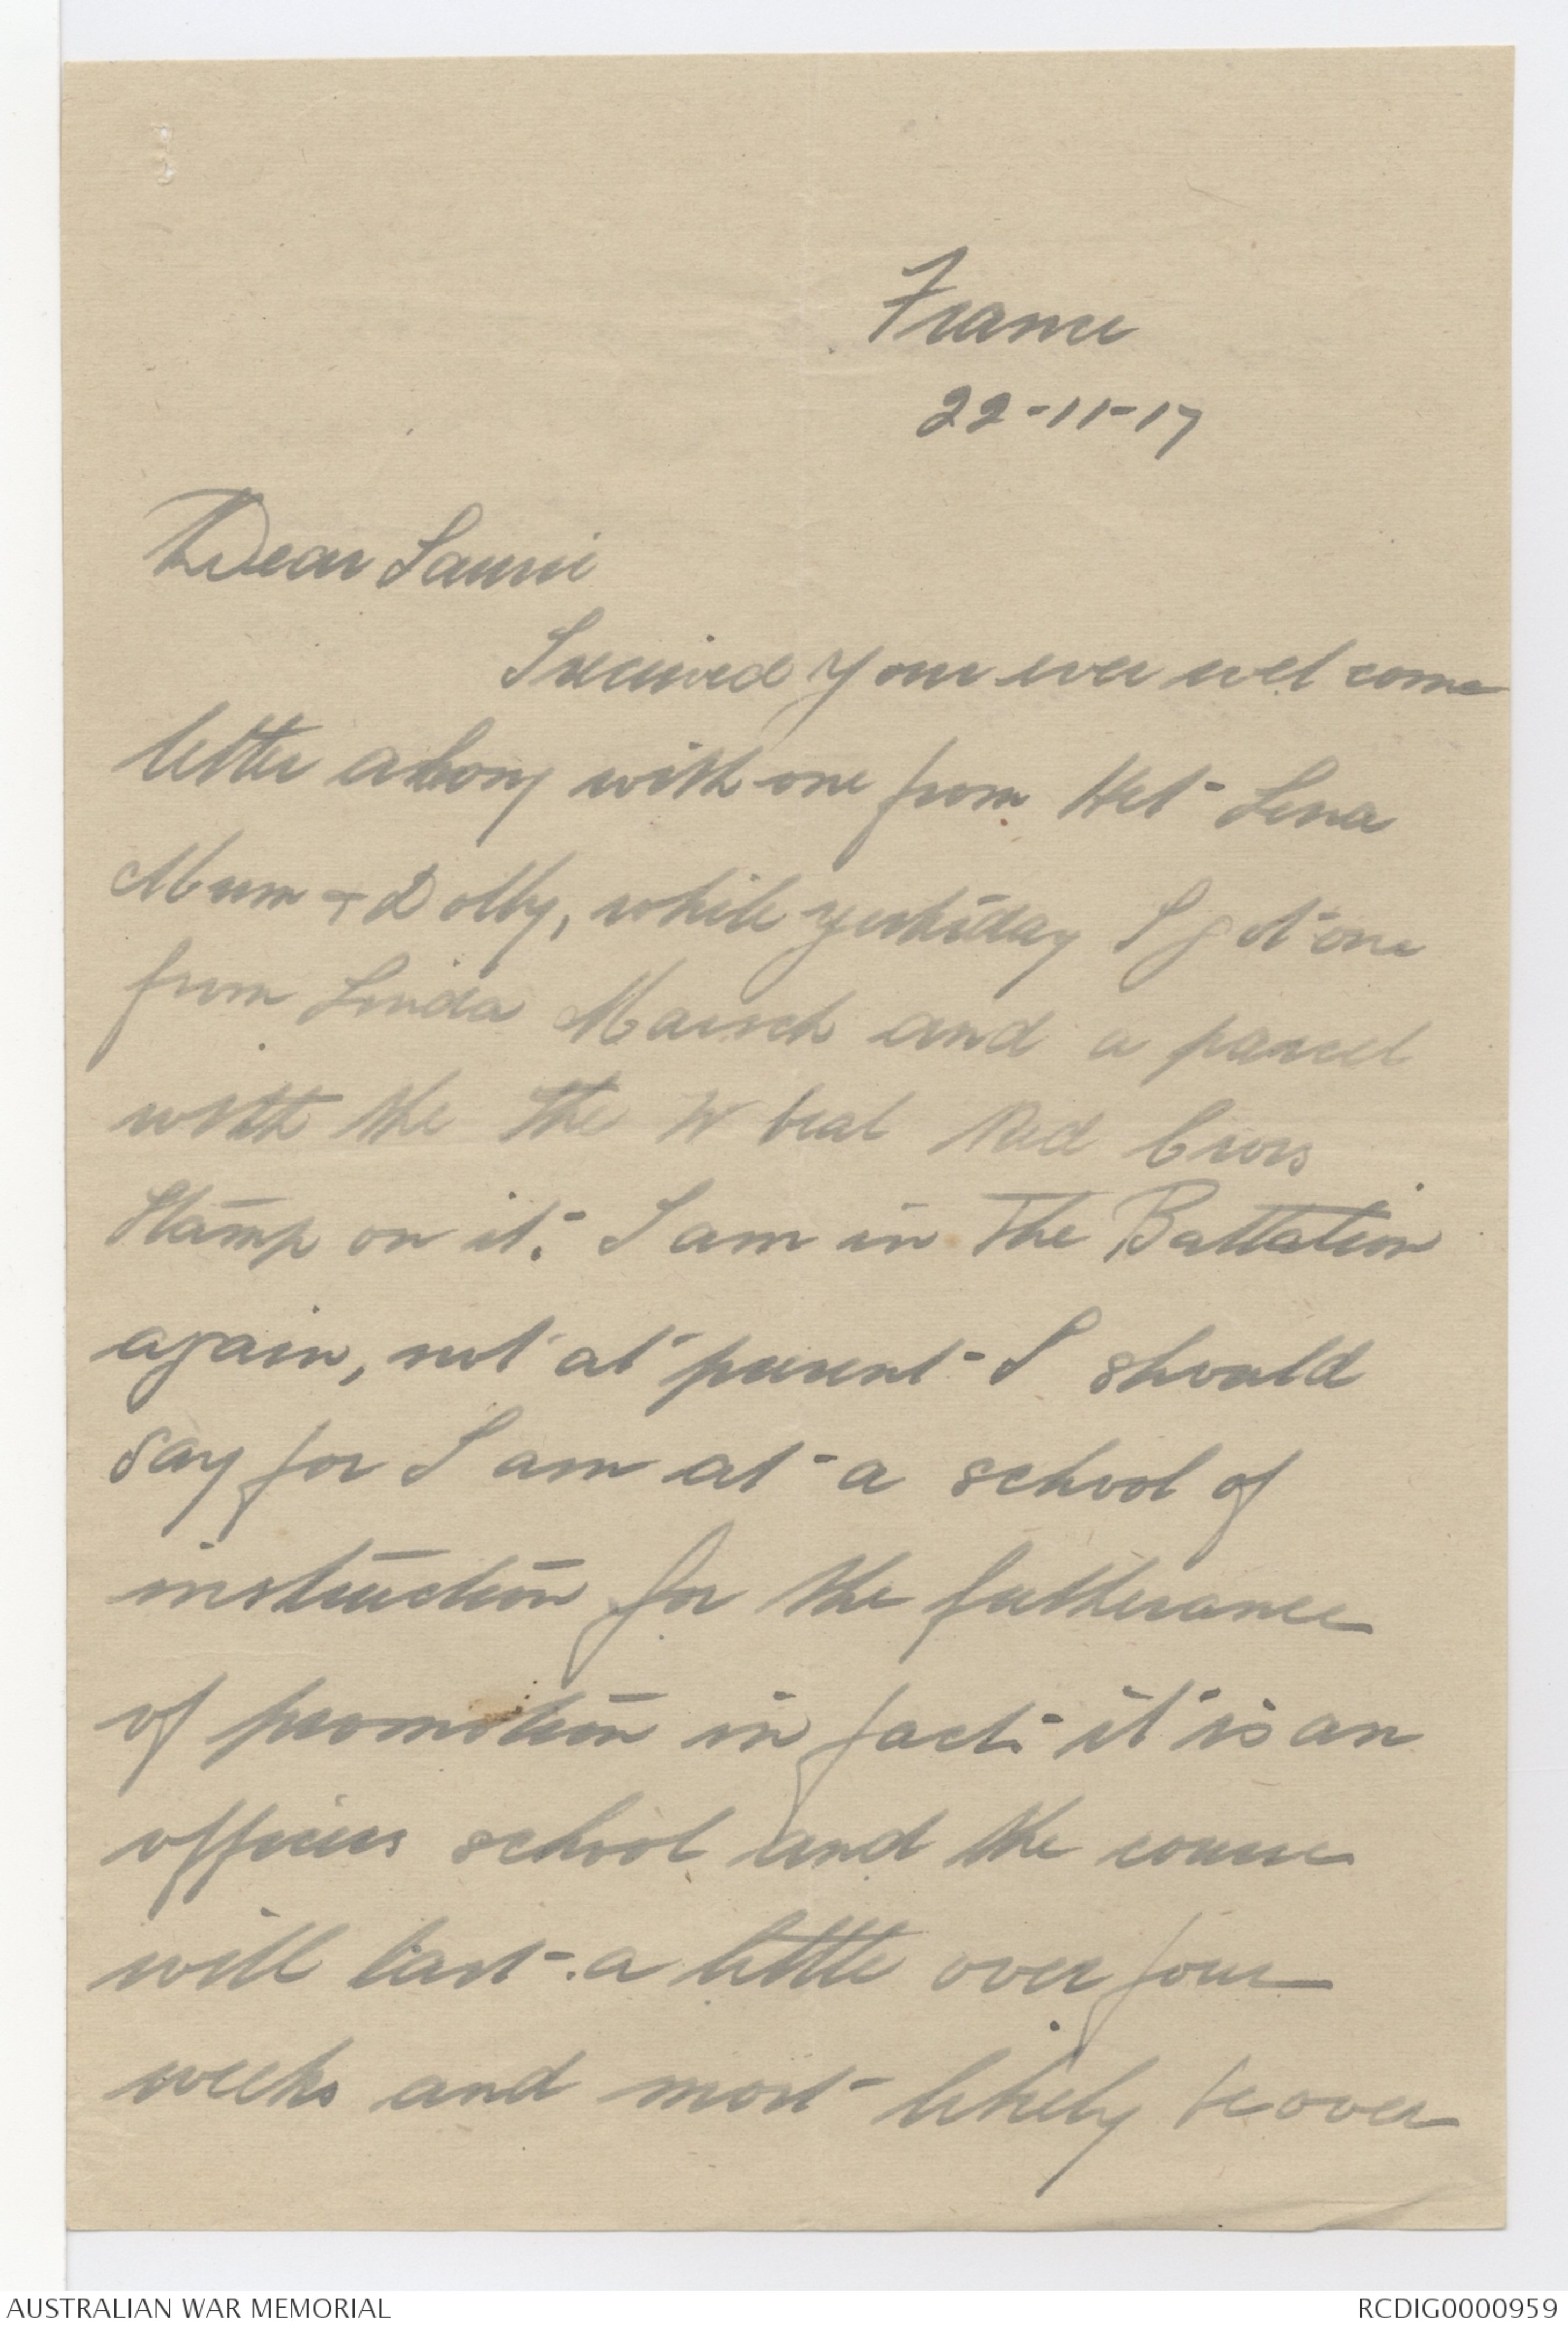 France
22-11-17
Dear Laurie
I received your ever welcome
letter along with one from Het Lena
Mum & Dolly, while yesterday I got one
from Linda and a parcel
with the the W Red Cross
Stamp on it. I am in the Battalion
again, not at present I should
say for I am at a school of
instruction for the futherance
of promotion in fact it is an
officers school and the course
will last a little over four
weeks and most likely be over
AUSTRALIAN WAR MEMORIAL
RCDIG0000959